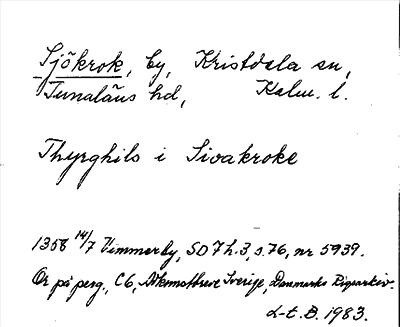 Sjökrok, by, Kristdala sn,
Tunaläns hd, Kalm. l.
Thyrghils i Sivakroke
1358 14/7 Vimmerby, SD 7 h.3, s.76, nr 5939.
Or på perg., C6, Sverige, Danmarks Rigsarkiv.
L-t. B. 1983.